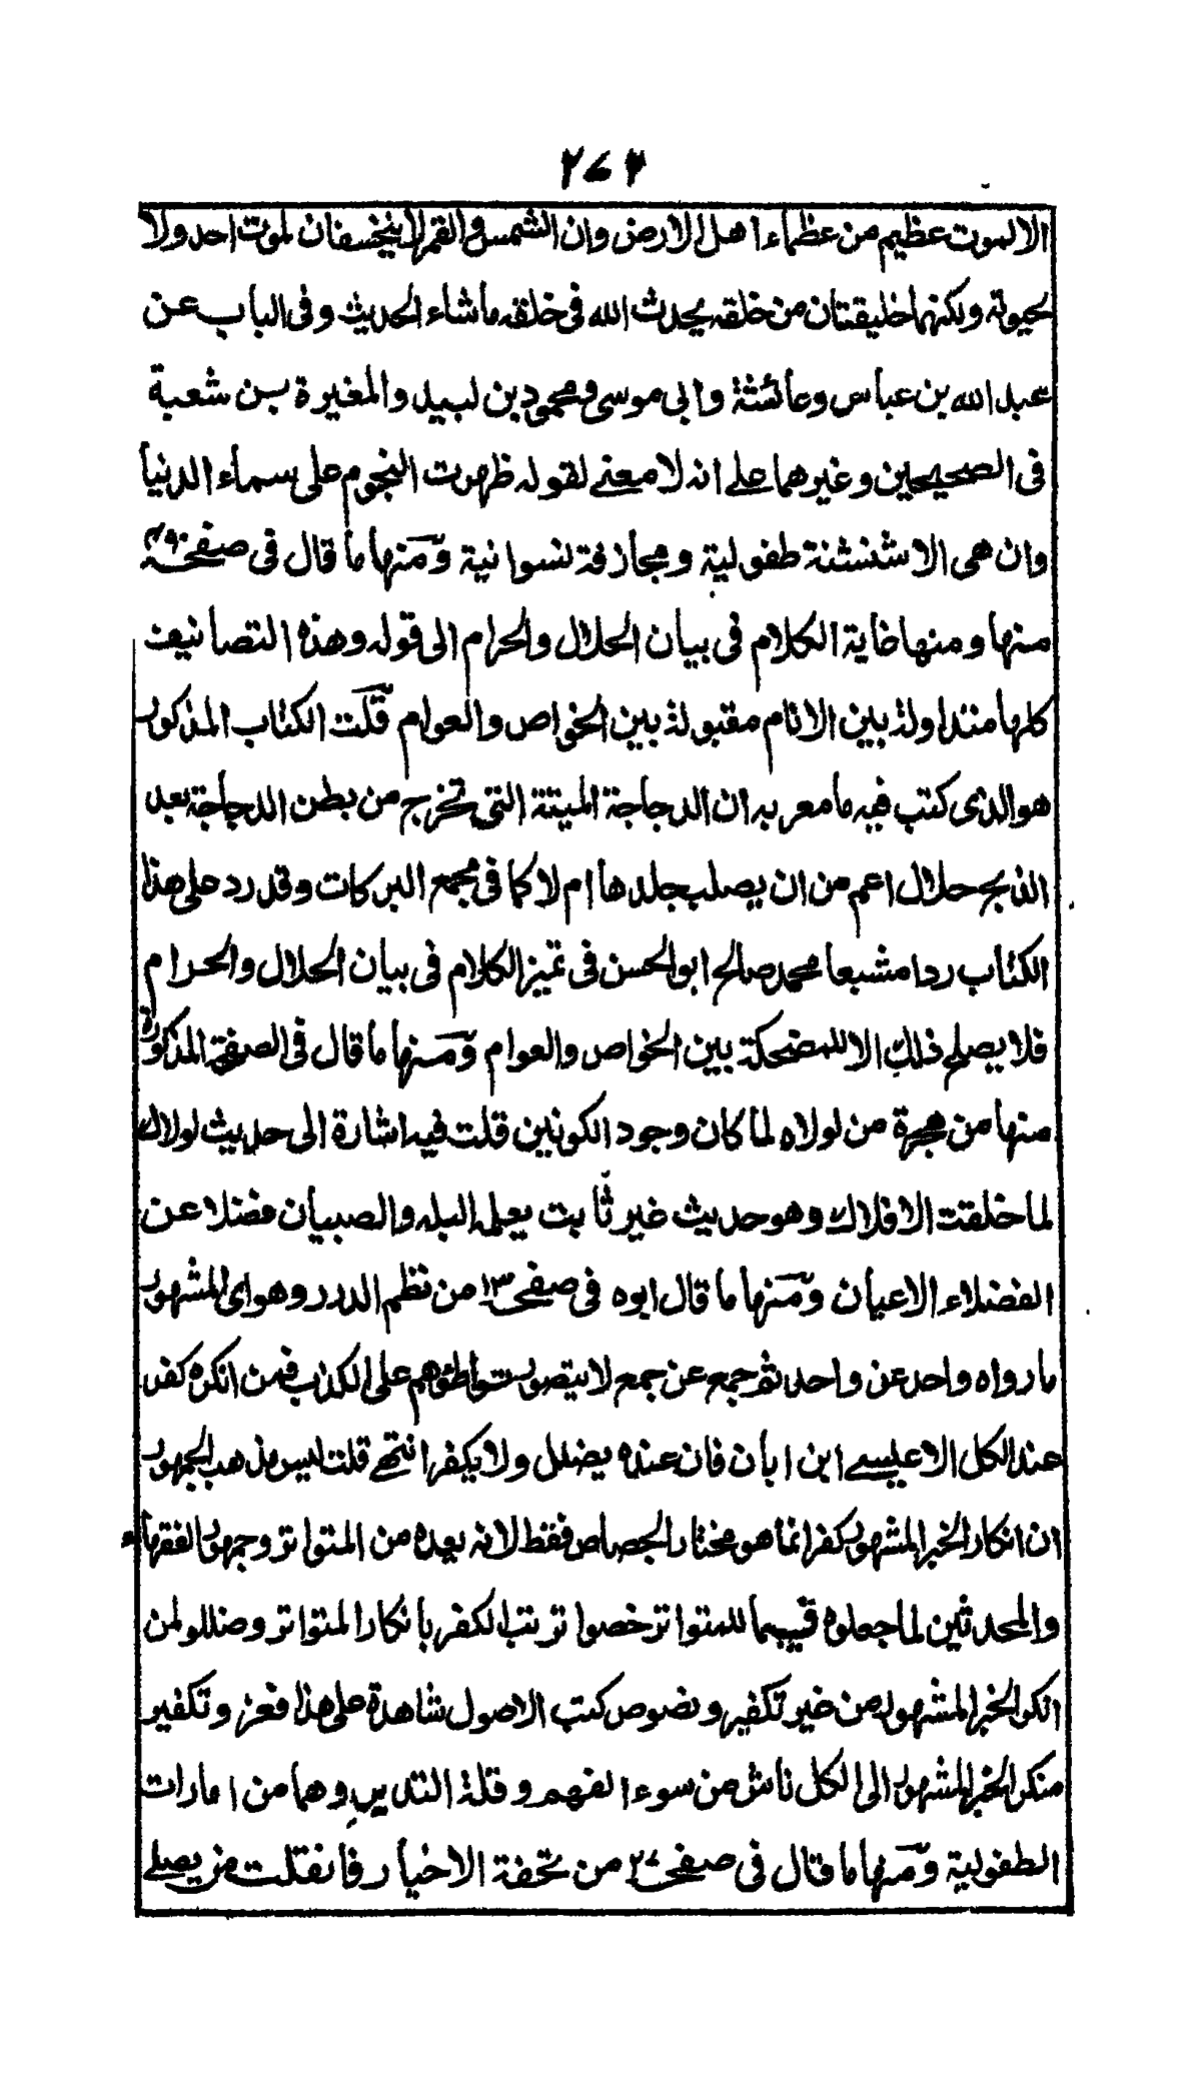 ٢٧٢
الا لموت عظيم من عظماء اهل الارض وان الشمس والقمر لا ينخسفان لموت احد ولا
لحيوته ولكنهما خليقتان من خلقه يحدث الله فى خلقه ما شاء الحديث وفى الباب عن
عبد الله بن عباس وعائشة وابى موسى ومحمود بن لبيد والمغيرة بن شعبة
فى الصحيحين وغيرهما على انه لا معنى لقوله ظهرت النجوم على سماء الدنيا
وان هى الا شنشنة طفولية ومجازفة نسوانية ومنها ما قال فى صفحة
منها ومنها غاية الكلام فى بيان الحلال والحرام الى قوله وهذه التصانيف
كلها متداولة بين الانام مقبولة بين الخواص والعوام قلت الكتاب المذكور
هو الذى كتب فيه ما معربه ان الدجاجة الميتة التى تخرج من بطن الدجاجة بعد
الذبح حلال اعم من ان يصلب جلدها ام لا كما فى مجمع البركات وقد رد على هذا
الكتاب ردا مشبعا محمد صالح ابو الحسن فى تميز الكلام فى بيان الحلال والحرام
فلا يصلح ذلك الا للمضحكة بين الخواص والعوام ومنها ما قال فى الصفحة المذكورة
منها من هجرة من لولاه لما كان وجود الكونين قلت فيه اشارة الى حديث لولاك
لما خلقت الافلاك وهو حديث غير ثابت يعلمه البله والصبيان فضلا عن
الفضلاء الاعيان ومنها ما قال ابوه فى صفحة ١٣ من نظم الدرر وهو اى المشهور
ما رواه واحد عن واحد ثم جمع عن جمع لا يتصور تواطؤهم على الكذب فمن انكره كفر
عند الكل الا عيسى ابن ابان فان عنده يضلل ولا يكفر انتهى قلت ليس مذهب الجمهور
ان انكار الخبر المشهور كفر انما هو مختار الجصاص فقط لانه يعده من المتواتر وجمهور الفقهاء
والمحدثين لما جعلوه قسيما للمتواتر خصوا ترتب الكفر بانكار المتواتر وضللوا من
انكر الخبر المشهور من غير تكفير ونصوص كتب الاصول شاهدة على هذا فعزو تكفير
منكر الخبر المشهور الى الكل ناش من سوء الفهم وقلة التدبر وهما من امارات
الطفولية ومنها ما قال فى صفحة ٢٧ من تحفة الاخيار فان قلت من يصلى